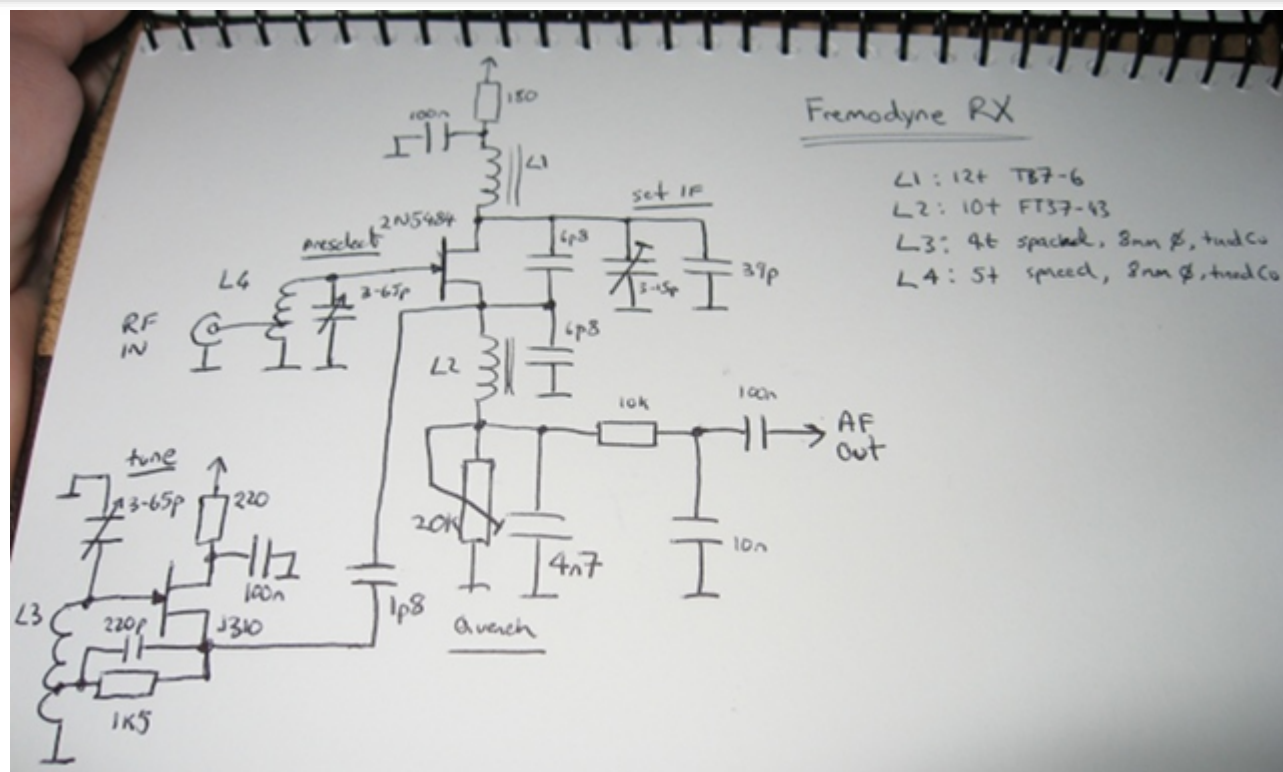 Fremodyne RX
L1 : 12t T37-6
L2 : 10t FT37-43
L3 : 4t spaced, 8mm Ø, tundCu
L4 : 5t spaced, 8mm Ø, tundCu
180
100n
L1
set IF
2N5484
preselect
6p8
3-15p
39p
L4
3-65p
RF
IN
6p8
L2
10k
100n
AF
out
tune
3-65p
220
20k
4n7
10n
100n
L3
220p
J310
1p8
Quench
1K5